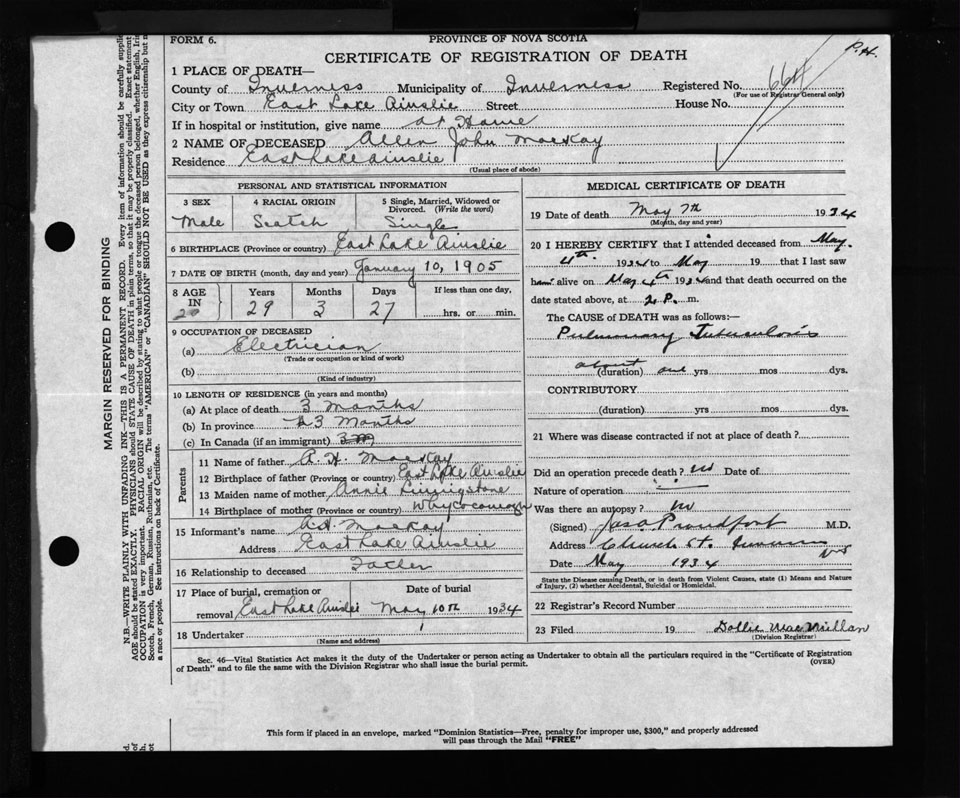 P.H.
PROVINCE OF NOVA SCOTIA
FORM 6.
CERTIFICATE OF REGISTRATION OF DEATH
1 PLACE OF DEATH—
County of Inverness Municipality of Inverness Registered No. 664
(For use of Registrar General only)
City or Town East Lake Ainslie Street House No.
If in hospital or institution, give name at Home
2 NAME OF DECEASED Allen John MacKay
Residence East Lake Ainslie
(Usual place of abode)
PERSONAL AND STATISTICAL INFORMATION
3 SEX 4 RACIAL ORIGIN 5 Single, Married, Widowed or Divorced. (Write the word)
Male Scotch Single
6 BIRTHPLACE (Province or country) East Lake Ainslie
7 DATE OF BIRTH (month, day and year) January 10, 1905
8 AGE IN Years Months Days If less than one day,
29 3 27 hrs. or min.
9 OCCUPATION OF DECEASED
(a) Electrician
(Trade or occupation or kind of work)
(b)
(Kind of industry)
10 LENGTH OF RESIDENCE (in years and months)
(a) At place of death 3 months
(b) In province 3 Months
(c) In Canada (if an immigrant)
Parents
11 Name of father A. H. MacKay
12 Birthplace of father (Province or country) East Lake Ainslie
13 Maiden name of mother Annie Livingstone
14 Birthplace of mother (Province or country) Whycocomagh
15 Informant's name A. H. MacKay
Address East Lake Ainslie
16 Relationship to deceased Father
17 Place of burial, cremation or removal Date of burial
East Lake Ainslie May 10th 1934
18 Undertaker
(Name and address)
MEDICAL CERTIFICATE OF DEATH
19 Date of death May 7th 1934
(Month, day and year)
20 I HEREBY CERTIFY that I attended deceased from May
4th 1934 to May 19 that I last saw
him alive on May 4th 1934 and that death occurred on the
date stated above, at 2 P. m.
The CAUSE OF DEATH was as follows:—
Pulmonary Tuberculosis
about
(duration) one yrs mos dys.
CONTRIBUTORY
(duration) yrs mos dys.
21 Where was disease contracted if not at place of death?
Did an operation precede death? no Date of
Nature of operation
Was there an autopsy? no
(Signed) Jas. Proudfoot M.D.
Address Church St. Inverness NS
Date May 1934
State the Disease causing Death, or in death from Violent Causes, state (1) Means and Nature
of Injury, (2) whether Accidental, Suicidal or Homicidal.
22 Registrar's Record Number
23 Filed 19 Dollie MacMillan
(Division Registrar)
Sec. 46—Vital Statistics Act makes it the duty of the Undertaker or person acting as Undertaker to obtain all the particulars required in the "Certificate of Registration
of Death" and to file the same with the Division Registrar who shall issue the burial permit.
(OVER)
This form if placed in an envelope, marked "Dominion Statistics—Free, penalty for improper use, $300," and properly addressed
will pass through the Mail "FREE"
MARGIN RESERVED FOR BINDING
N.B.—WRITE PLAINLY WITH UNFADING INK—THIS IS A PERMANENT RECORD. Every item of information should be carefully supplied
AGE should be stated EXACTLY. PHYSICIANS should STATE CAUSE OF DEATH in plain terms, so that it may be properly classified. Exact statement
OCCUPATION is very important. RACIAL ORIGIN will be described by stating to what people or tongue the deceased person belonged, whether English, Iri
Scotch, French, German, Russian, Ruthenian, etc. The terms "AMERICAN" or "CANADIAN" SHOULD NOT BE USED as they express citizenship but n
a race or people. See instructions on back of Certificate.